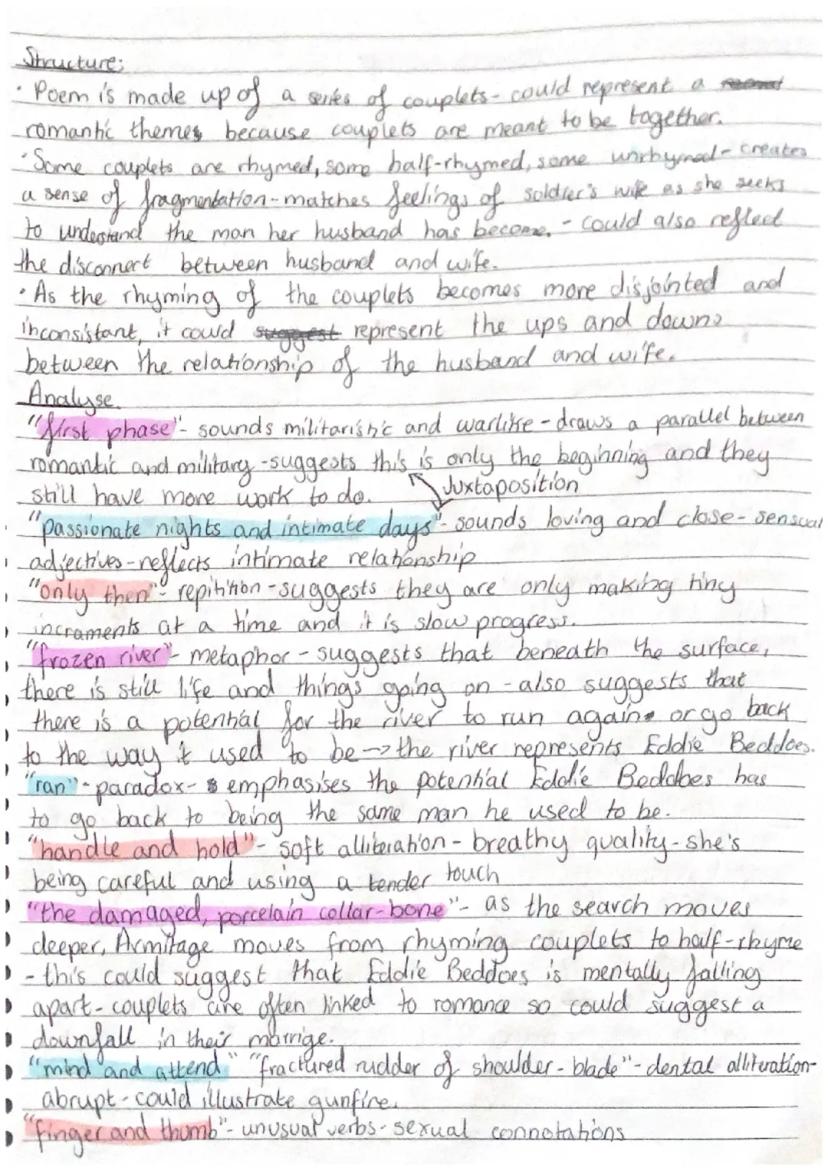 Structure:
· Poem is made up of a series of couplets - could represent a
romantic themes because couplets are meant to be together.
· Some couplets are rhymed, some half-rhymed, some unrhymed - creates
a sense of fragmentation - matches feelings of soldier's wife as she seeks
to understand the man her husband has become. - could also reflect
the disconnect between husband and wife.
· As the rhyming of the couplets becomes more disjointed and
inconsistant, it could suggest represent the ups and downs
between the relationship of the husband and wife.
Analyse
"first phase" - sounds militaristic and warlike - draws a parallel between
romantic and military - suggests this is only the beginning and they
still have more work to do. Juxtaposition
"passionate nights and intimate days" - sounds loving and close - sensual
adjectives - reflects intimate relationship
"only then" - repitition - suggests they are only making tiny
incraments at a time and it is slow progress.
"frozen river" - metaphor - suggests that beneath the surface,
there is still life and things going on - also suggests that
there is a potential for the river to run again or go back
to the way it used to be → the river represents Eddie Beddoes.
"ran" - paradox - emphasises the potential Eddie Beddoes has
to go back to being the same man he used to be.
"handle and hold" - soft alliteration - breathy quality - she's
being careful and using a tender touch
"the damaged, porcelain collar-bone" - as the search moves
deeper, Armitage moves from rhyming couplets to half-rhyme
- this could suggest that Eddie Beddoes is mentally falling
apart - couplets are often linked to romance so could suggest a
downfall in their marrige.
"mind and attend" "fractured rudder of shoulder-blade" - dental alliteration -
abrupt - could illustrate gunfire.
"finger and thumb" - unusual verbs - sexual connotations